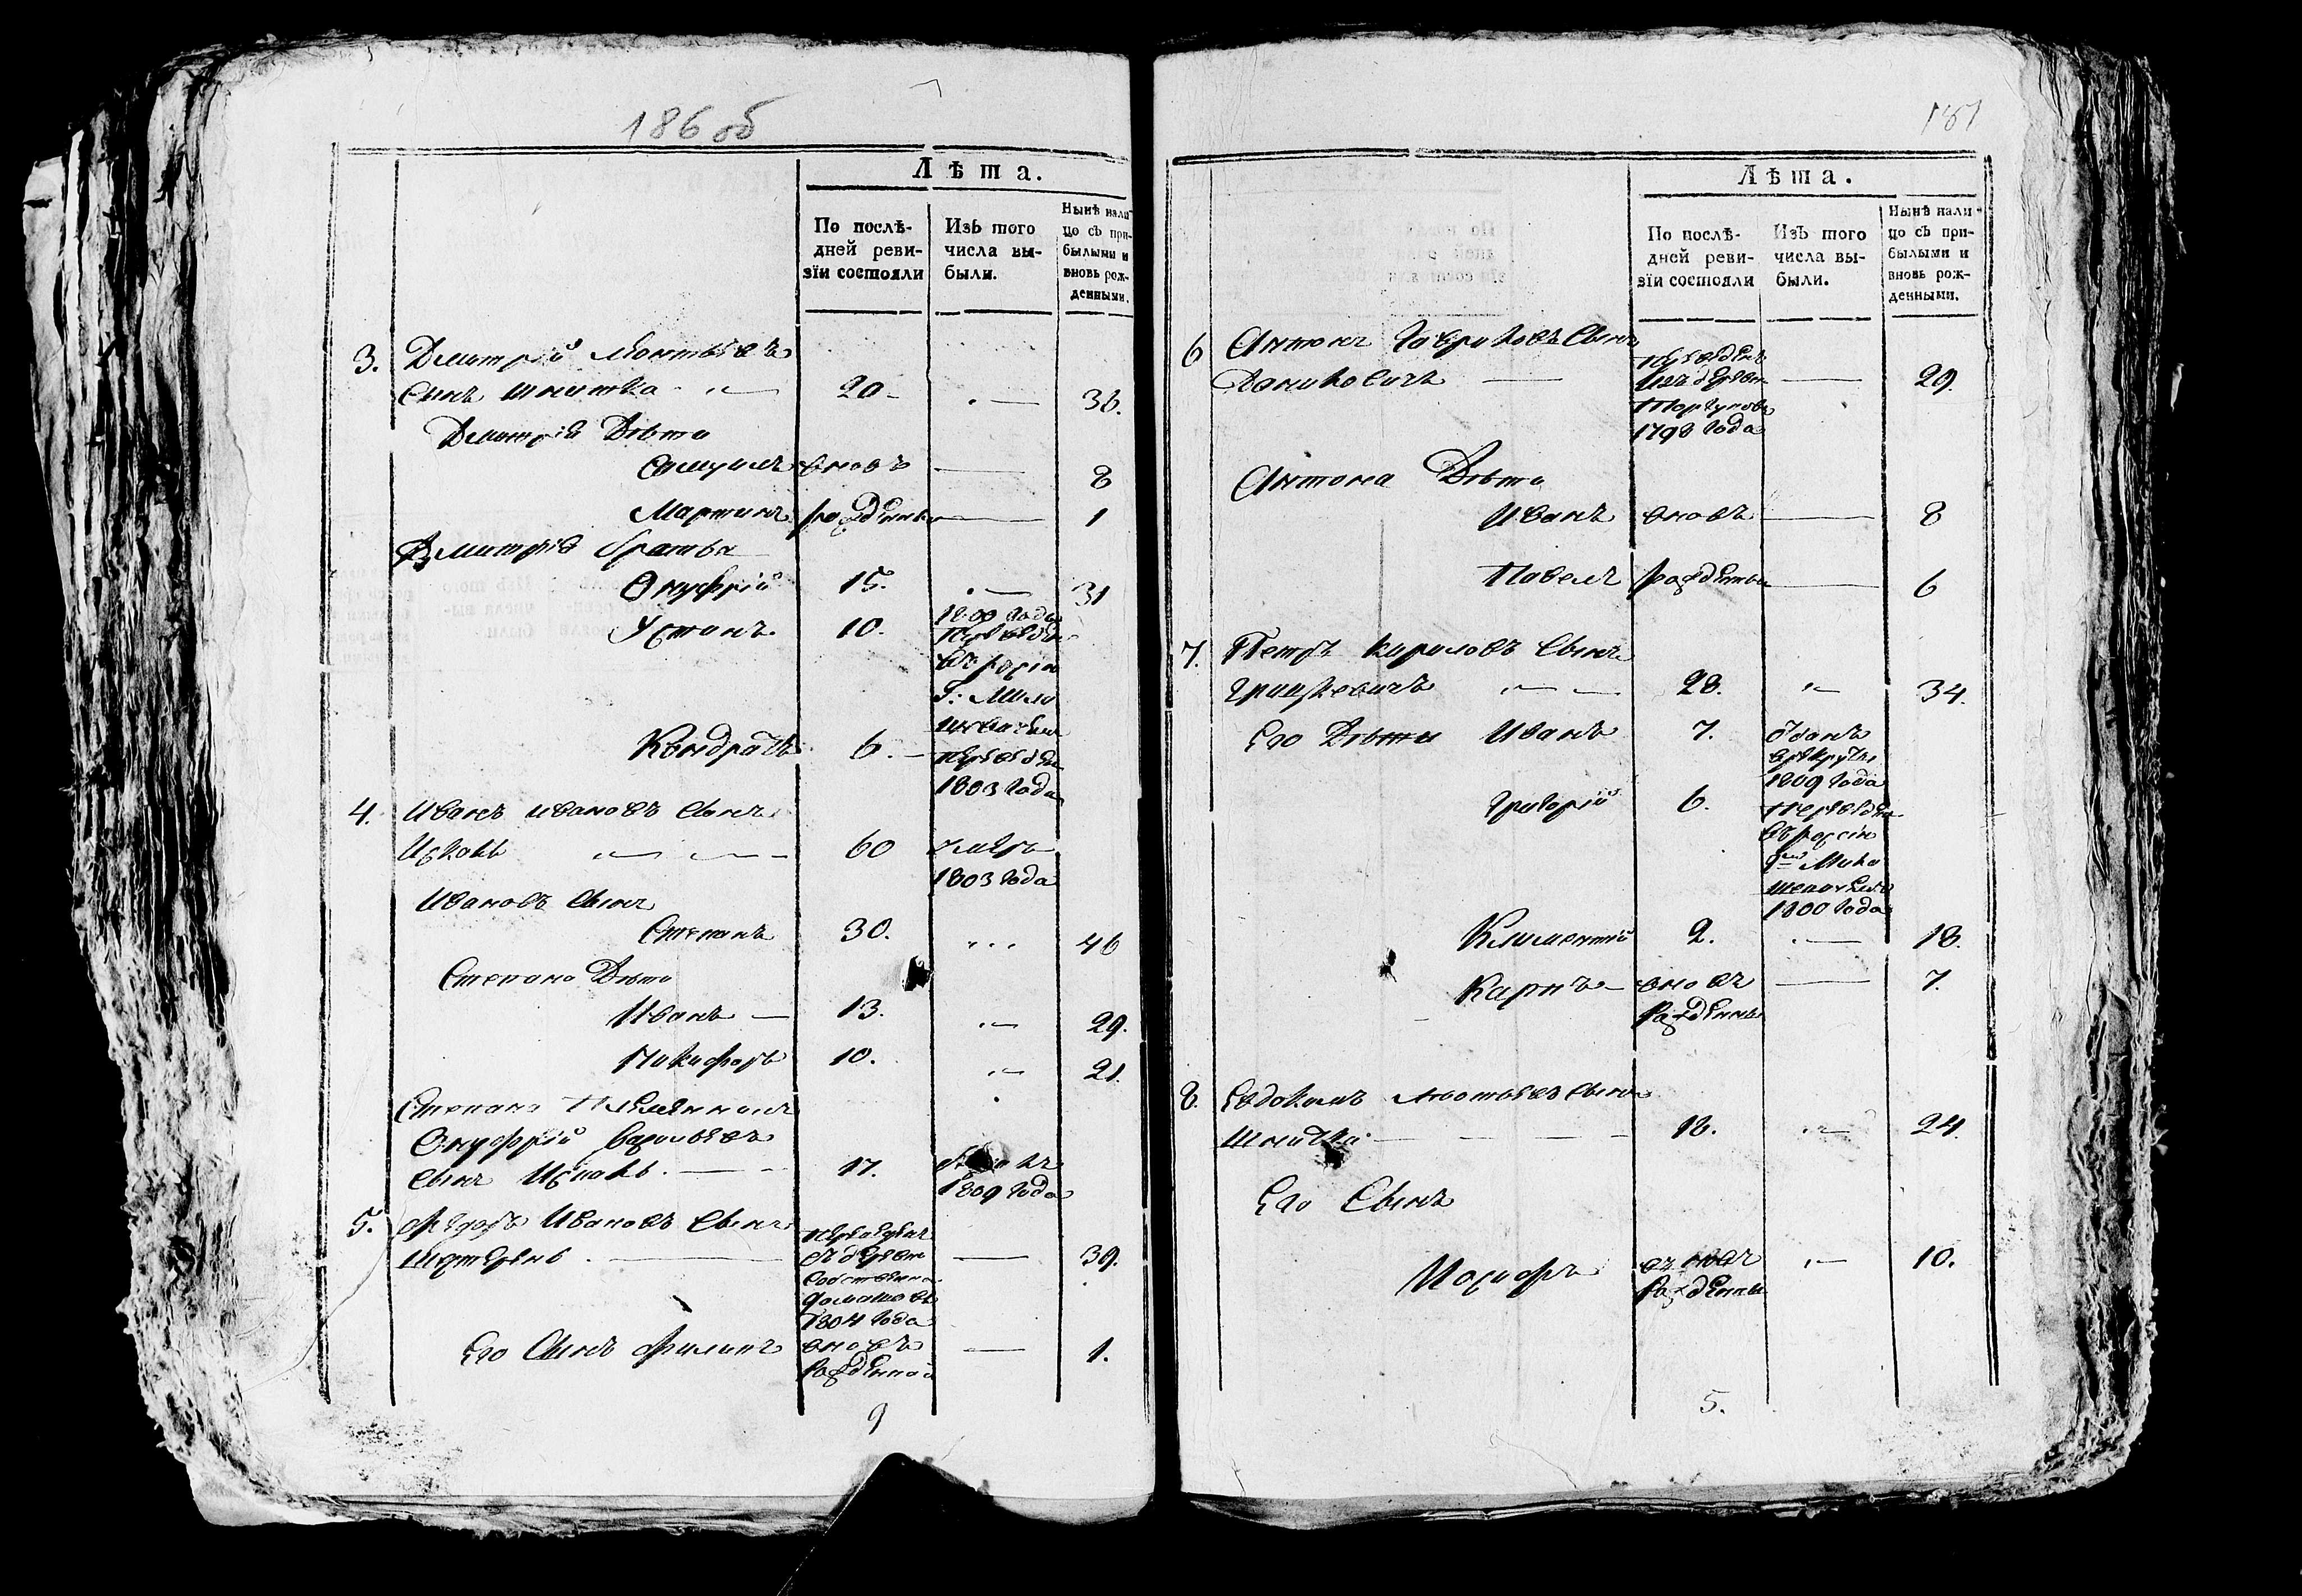 186 об
Лѣта.
По послѣ-
дней реви-
зїи состояли
Изъ того
числа вы-
были.
Нынѣ нали-
цо съ при-
былыми и
вновь рож-
денными.
3. Дмитрій Леонтьевъ
сынъ Шнитка 20 — 36.
Дмитрія Дѣти
Самуилъ вновь — 8
Мартинъ рожденны — 1
Дмитрія братья
Онуфрій 15. — 31
Устинъ 10. 1800 года
переведен
въ росію
Г:
Кондратъ 6.
переведен
1803 года
4. Иванъ Ивановъ сынъ
60 умеръ
1803 года
Ивановъ сынъ
Степанъ 30. 46
Степана Дѣти
Иванъ — 13. 29.
Никифоръ 10. 21.
Степана племянникъ
Онуфрій Васильевъ
сынъ 17.
1809 года
5. Федоръ Ивановъ сынъ
— 39.
1804 года
Его сынъ Филипъ вновь — 1.
рожденной
9
187
Лѣта.
По послѣ-
дней реви-
зїи состояли
Изъ того
числа вы-
были.
Нынѣ нали-
цо съ при-
былыми и
вновь рож-
денными.
6 Антонъ Гавриловъ сынъ переведенъ
изъ деревн — 29.
1798 года
Антона Дѣти
Иванъ вновь — 8
Павелъ рожденны — 6
7. Петръ Кириловъ сынъ
Грицкевичъ 28. 34.
Его Дѣти Иванъ 7. Отданъ
врекруты
1809 года
Григорій 6. переведен
въ росію
1800 года
Климентій 2. — 18.
Карпъ — вновь — 7.
рожденны
8. Евдокимъ Леонтьевъ сынъ
Шнитка — 18. 24.
Его сынъ
Иосифъ вновь 10.
рожденны
5.